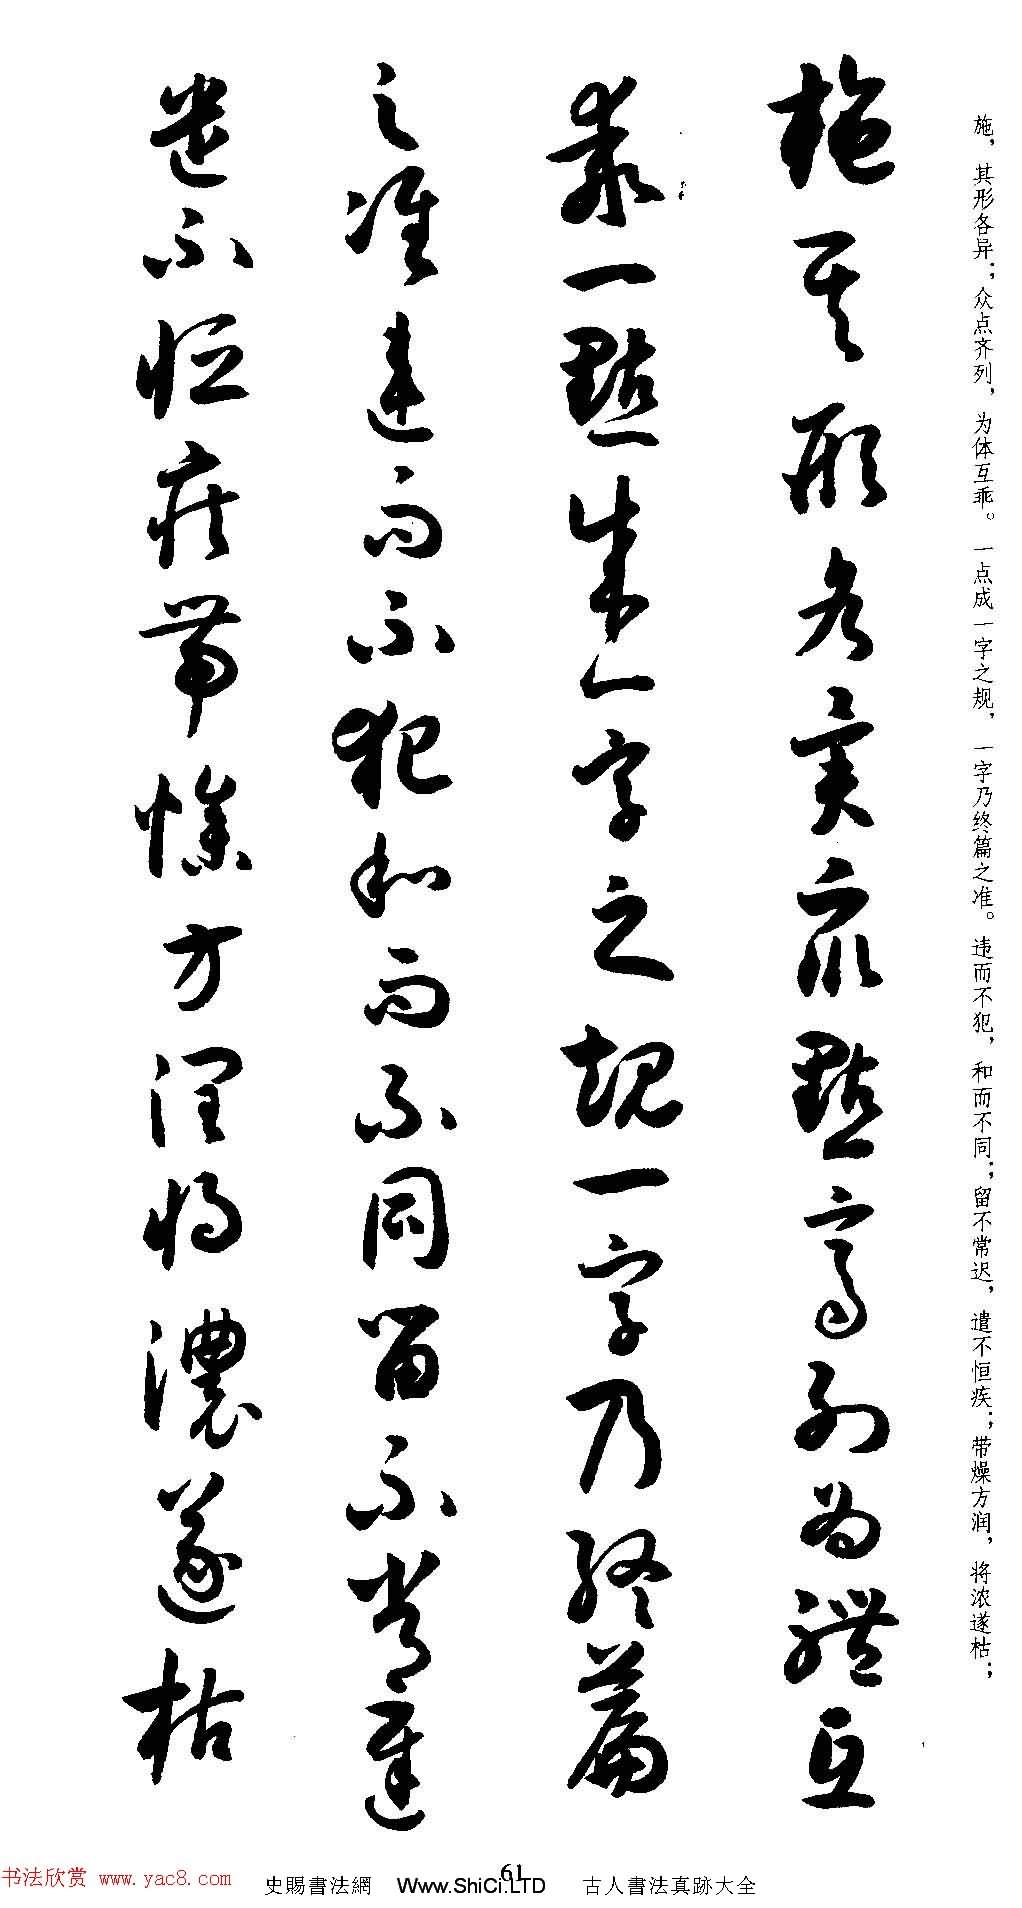 施，其形各异；众点齐列，为体互乖。一点成一字之规，一字乃终篇之准。违而不犯，和而不同；留不常迟，遣不恒疾；带燥方润，将浓遂枯；
施其形各異衆點齊列為體互
乖一點成一字之規一字乃終篇
之准違而不犯和而不同留不常遲
遣不恒疾帶燥方潤將濃遂枯
61
书法欣赏 www.yac8.com
史賜書法網 Www.ShiCi.LTD 古人書法真跡大全